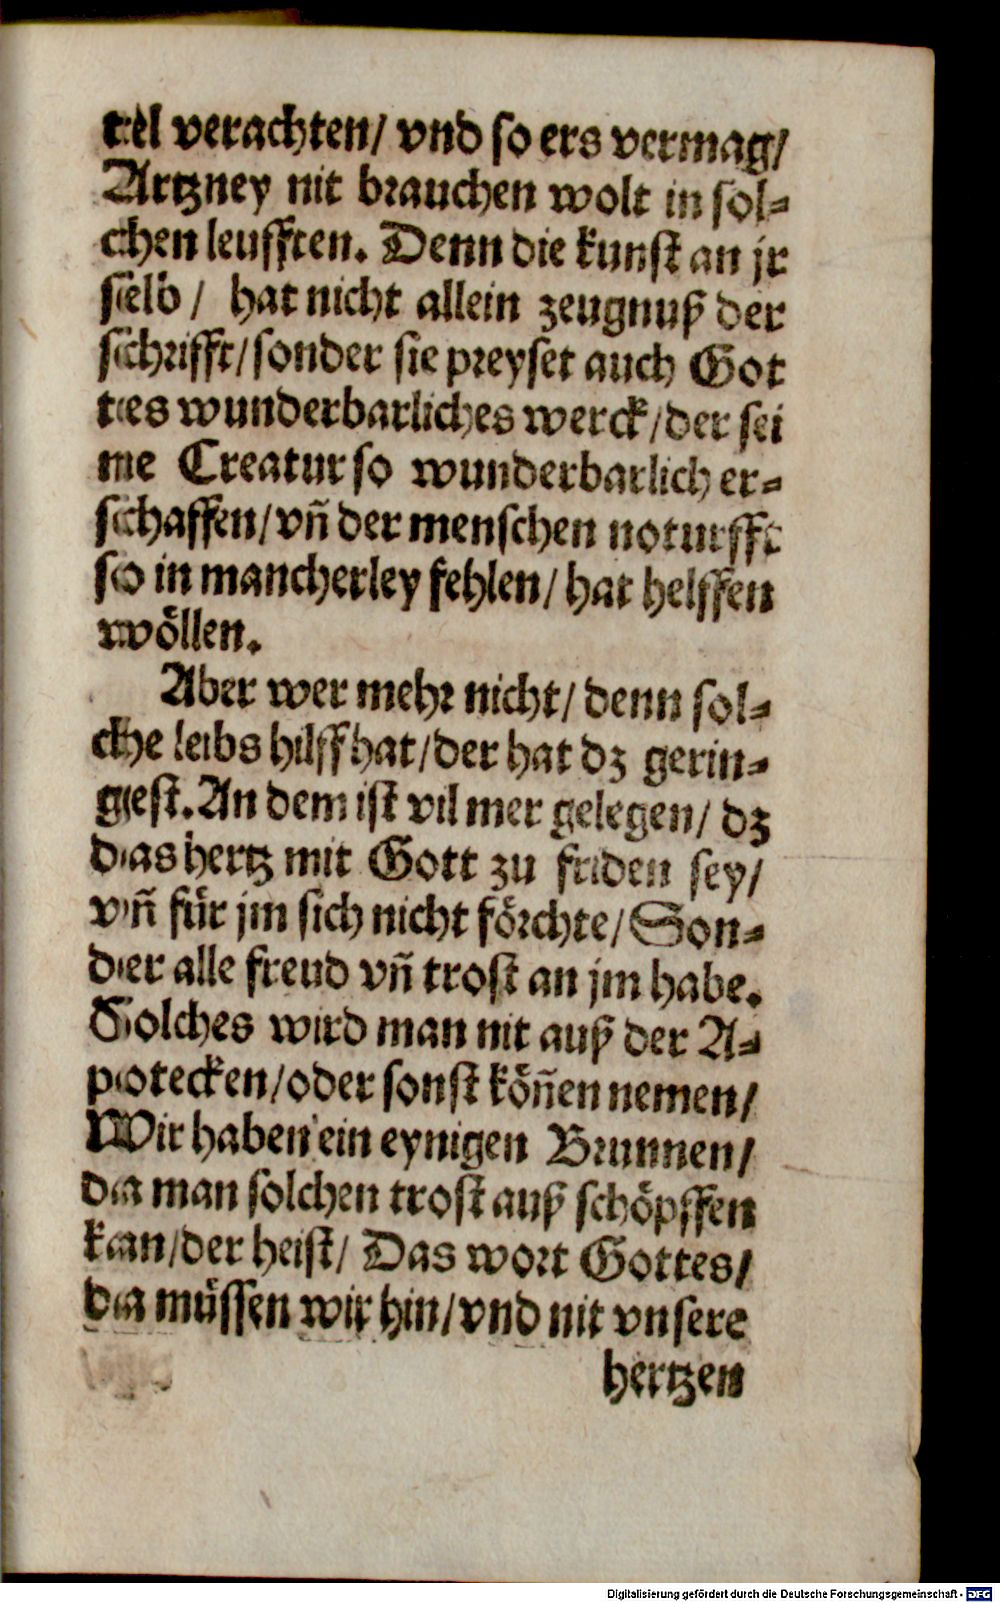 tel verachten/ vnd so ers vermag/
Artzney nit brauchen wolt in sol⸗
chen leufften. Denn die kunst an jr
selb / hat nicht allein zeugnuß der
schrifft/ sonder sie preyset auch Got
tes wunderbarliches werck/ der sei
ne Creatur so wunderbarlich er⸗
schaffen/ vñ der menschen noturfft
so in mancherley fehlen/ hat helffen
wöllen.
Aber wer mehr nicht/ denn sol⸗
che leibs hilff hat/ der hat dz gerin⸗
gest. An dem ist vil mer gelegen/ dz
das hertz mit Gott zu friden sey/
vñ für jm sich nicht förchte/ Son⸗
der alle freud vñ trost an jm habe.
Solches wird man nit auß der A⸗
potecken/ oder sonst köñen nemen/
Wir haben ein eynigen Brunnen/
da man solchen trost auß schöpffen
kan/ der heist/ Das wort Gottes/
da müssen wir hin/ vnd nit vnsere
hertzen
Digitalisierung gefördert durch die Deutsche Forschungsgemeinschaft - DFG